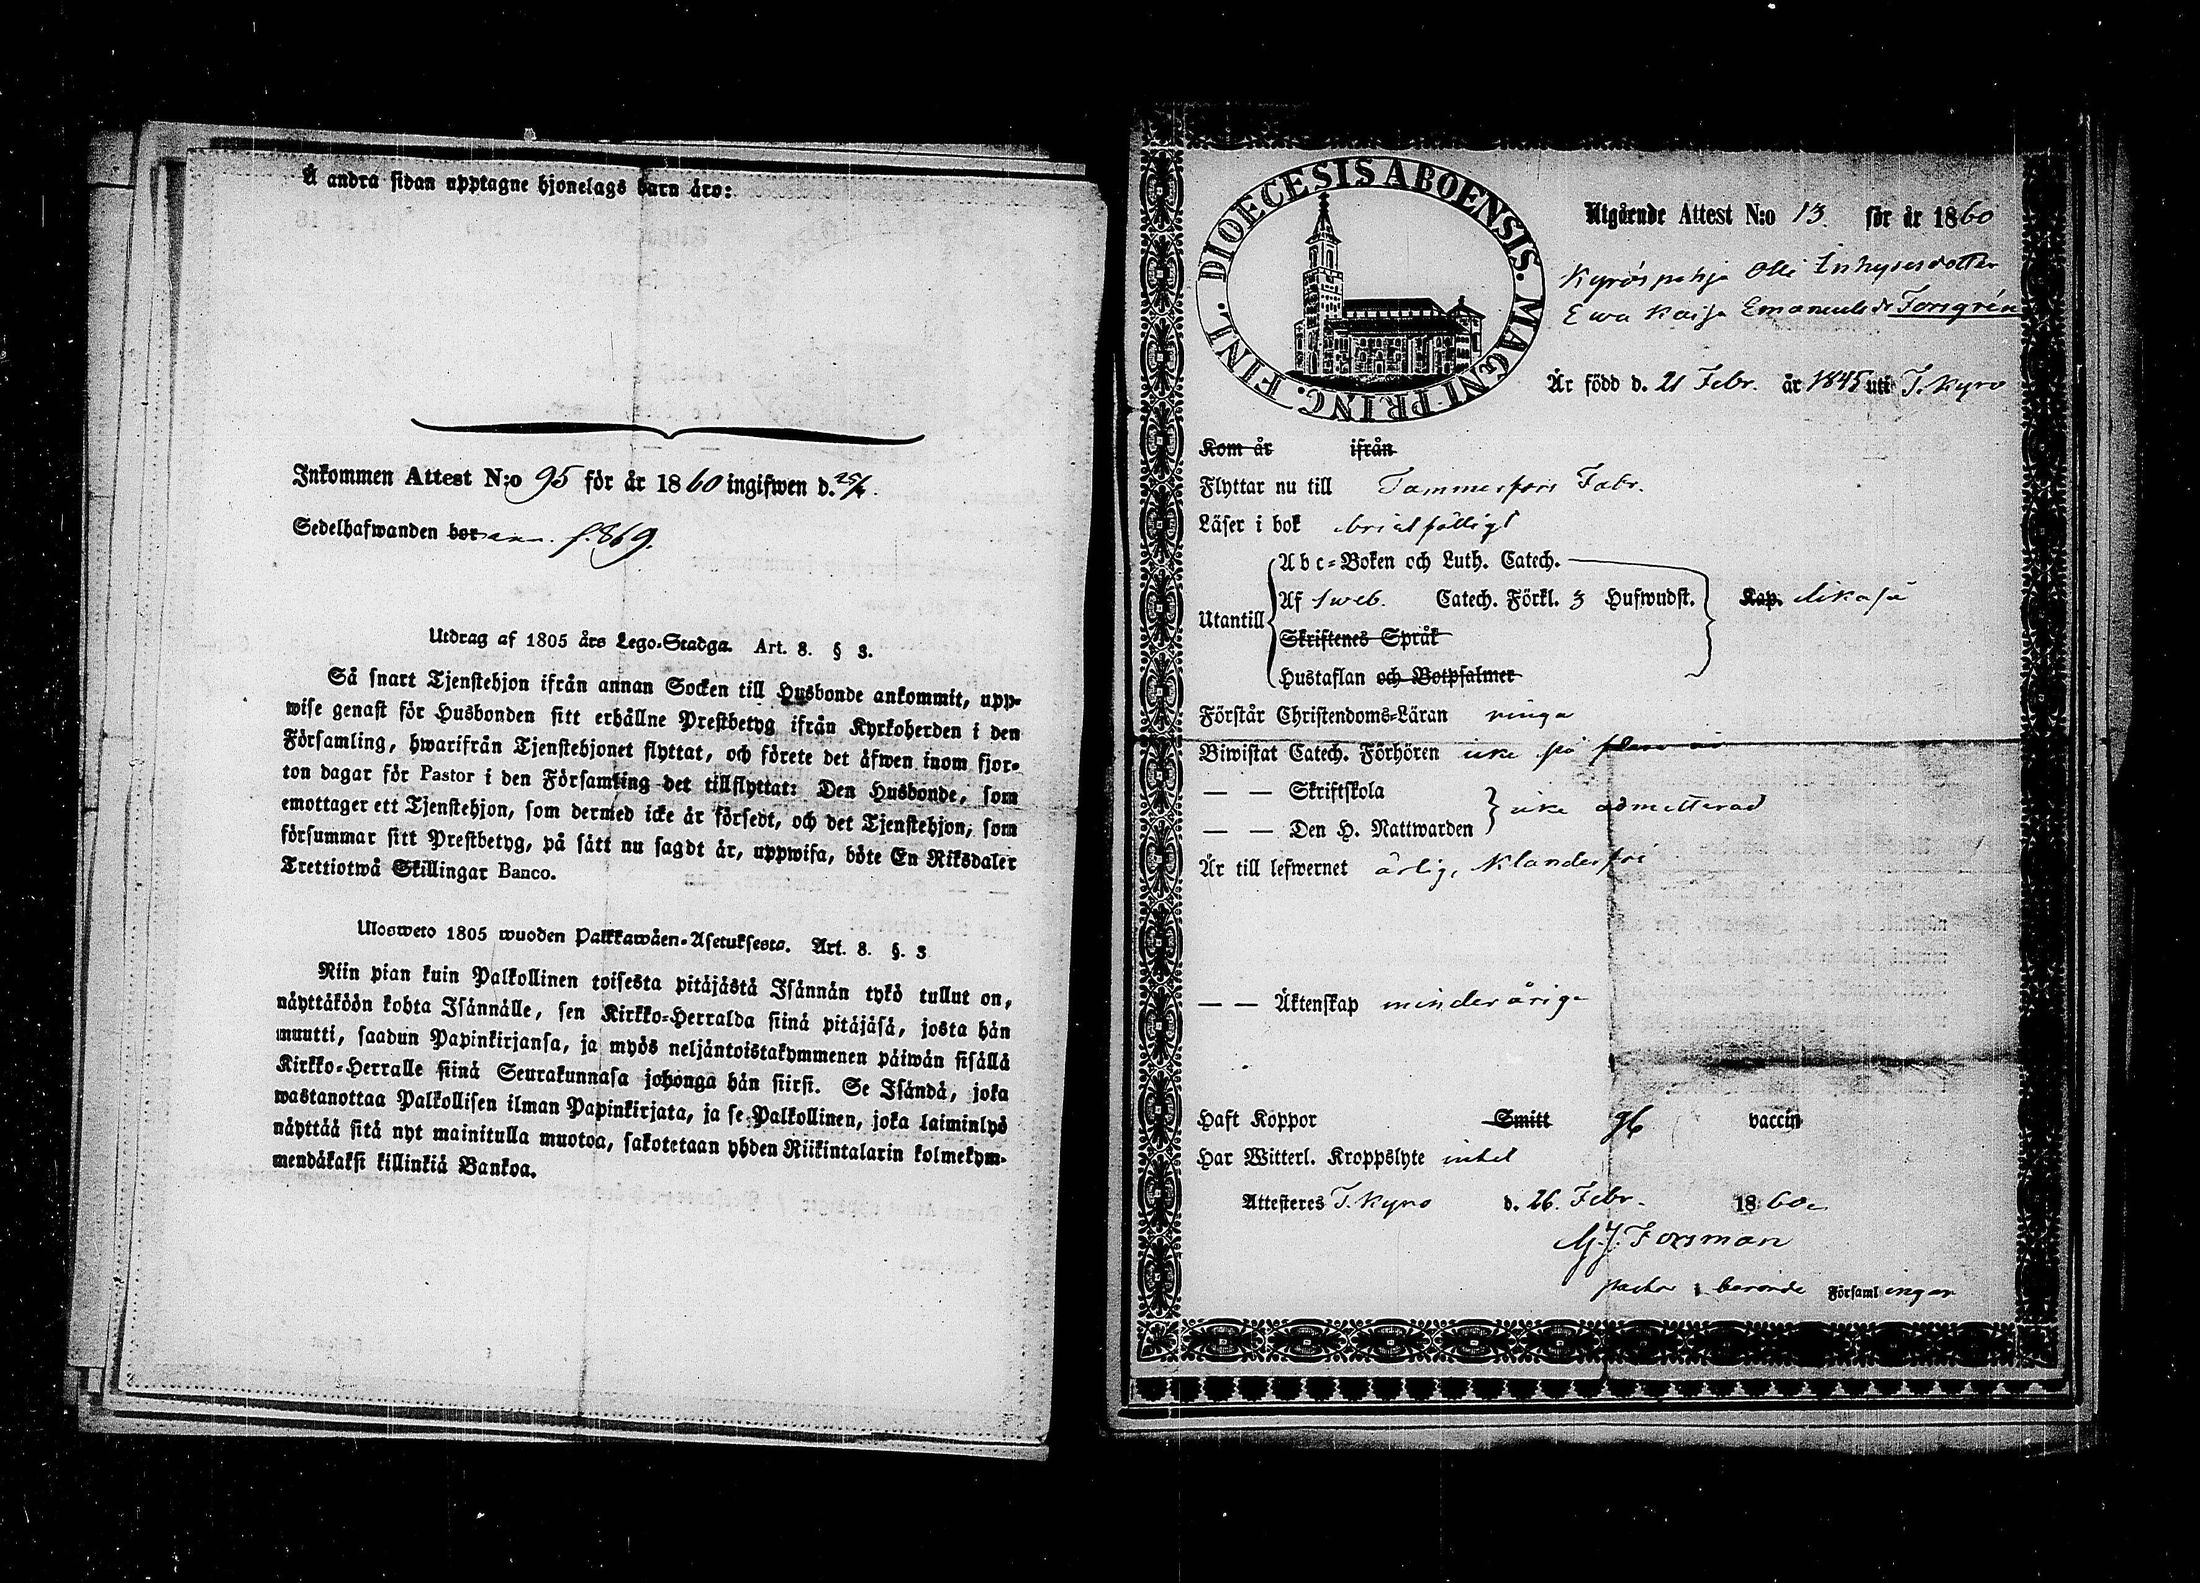 Å andra sidan upptagne hjonelags barn äro:
Inkommen Attest N:o 95 för år 1860 ingifwen d. 25/
Sedelhafwanden bor ann. f. 869.
Utdrag af 1805 års Lego-Stadga. Art. 8. § 3.
Så snart Tjenstehjon ifrån annan Socken till Husbonde ankommit, upp-
wise genast för Husbonden sitt erhållne Prestbetyg ifrån Kyrkoherden i den
Församling, hwarifrån Tjenstehjonet flyttat, och förete det äfwen inom fjor-
ton dagar för Pastor i den Församling det tillflyttat: Den Husbonde, som
emottager ett Tjenstehjon, som dermed icke är försedt, och det Tjenstehjon, som
försummar sitt Prestbetyg, på sätt nu sagdt är, uppwisa, böte En Riksdaler
Trettiotwå Skillingar Banco.
Ulosweto 1805 wuoden Palkkawäen-Asetuksesta. Art. 8. §. 3
Niin pian kuin Palkollinen toisesta pitäjästä Isännän tykö tullut on,
näyttäköön kohta Isännälle, sen Kirkko-Herralda siinä pitäjäsä, josta hän
muutti, saadun Papinkirjansa, ja myös neljäntoistakymmenen päiwän sisällä
Kirkko-Herralle siinä Seurakunnasa johonga hän siirsi. Se Isändä, joka
wastanottaa Palkollisen ilman Papinkirjata, ja se Palkollinen, joka laiminlyö
näyttää sitä nyt mainitulla muotoa, sakotetaan yhden Riikintalarin kolmekym-
mendäkaksi killinkiä Bankoa.
DIOECESIS ABOENSIS. MAGNI PRINC. FINL.
Utgående Attest N:o 13. för år 1860
Kyröspohja Olli Inhysesdotter
Ewa Kaisa Emanuels dr Forsgrén
Är född d. 21 Febr. år 1845 uti T. Kyro
Kom år ifrån
Flyttar nu till Tammerfors Fabr.
Läser i bok
Abc-Boken och Luth. Catech.
Utantill Af Sweb. Catech. Förkl. 3 Hufwudst. Kap. likaså
Skriftenes Språk
Hustaflan och Botpsalmer
Förstår Christendoms-Läran ringa
Biwistat Catech. Förhören icke på
— — Skriftskola
icke admitterad
— — Den H. Nattwarden
Är till lefwernet ärlig, klanderfri
— — Äktenskap minderårig
Haft Koppor Smitt gb vaccin
Har Witterl. Kroppslyte intet
Attesteras T. Kyro d. 26. Febr. 1860.
M. J. Forsman
pastor i berörde Församlingar